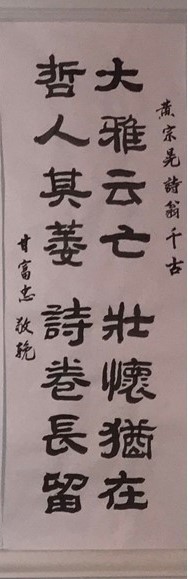 黄宗晃詩翁千古
大雅云亡 壯懷猶在
哲人其萎 詩卷長留
甘富忠敬輓